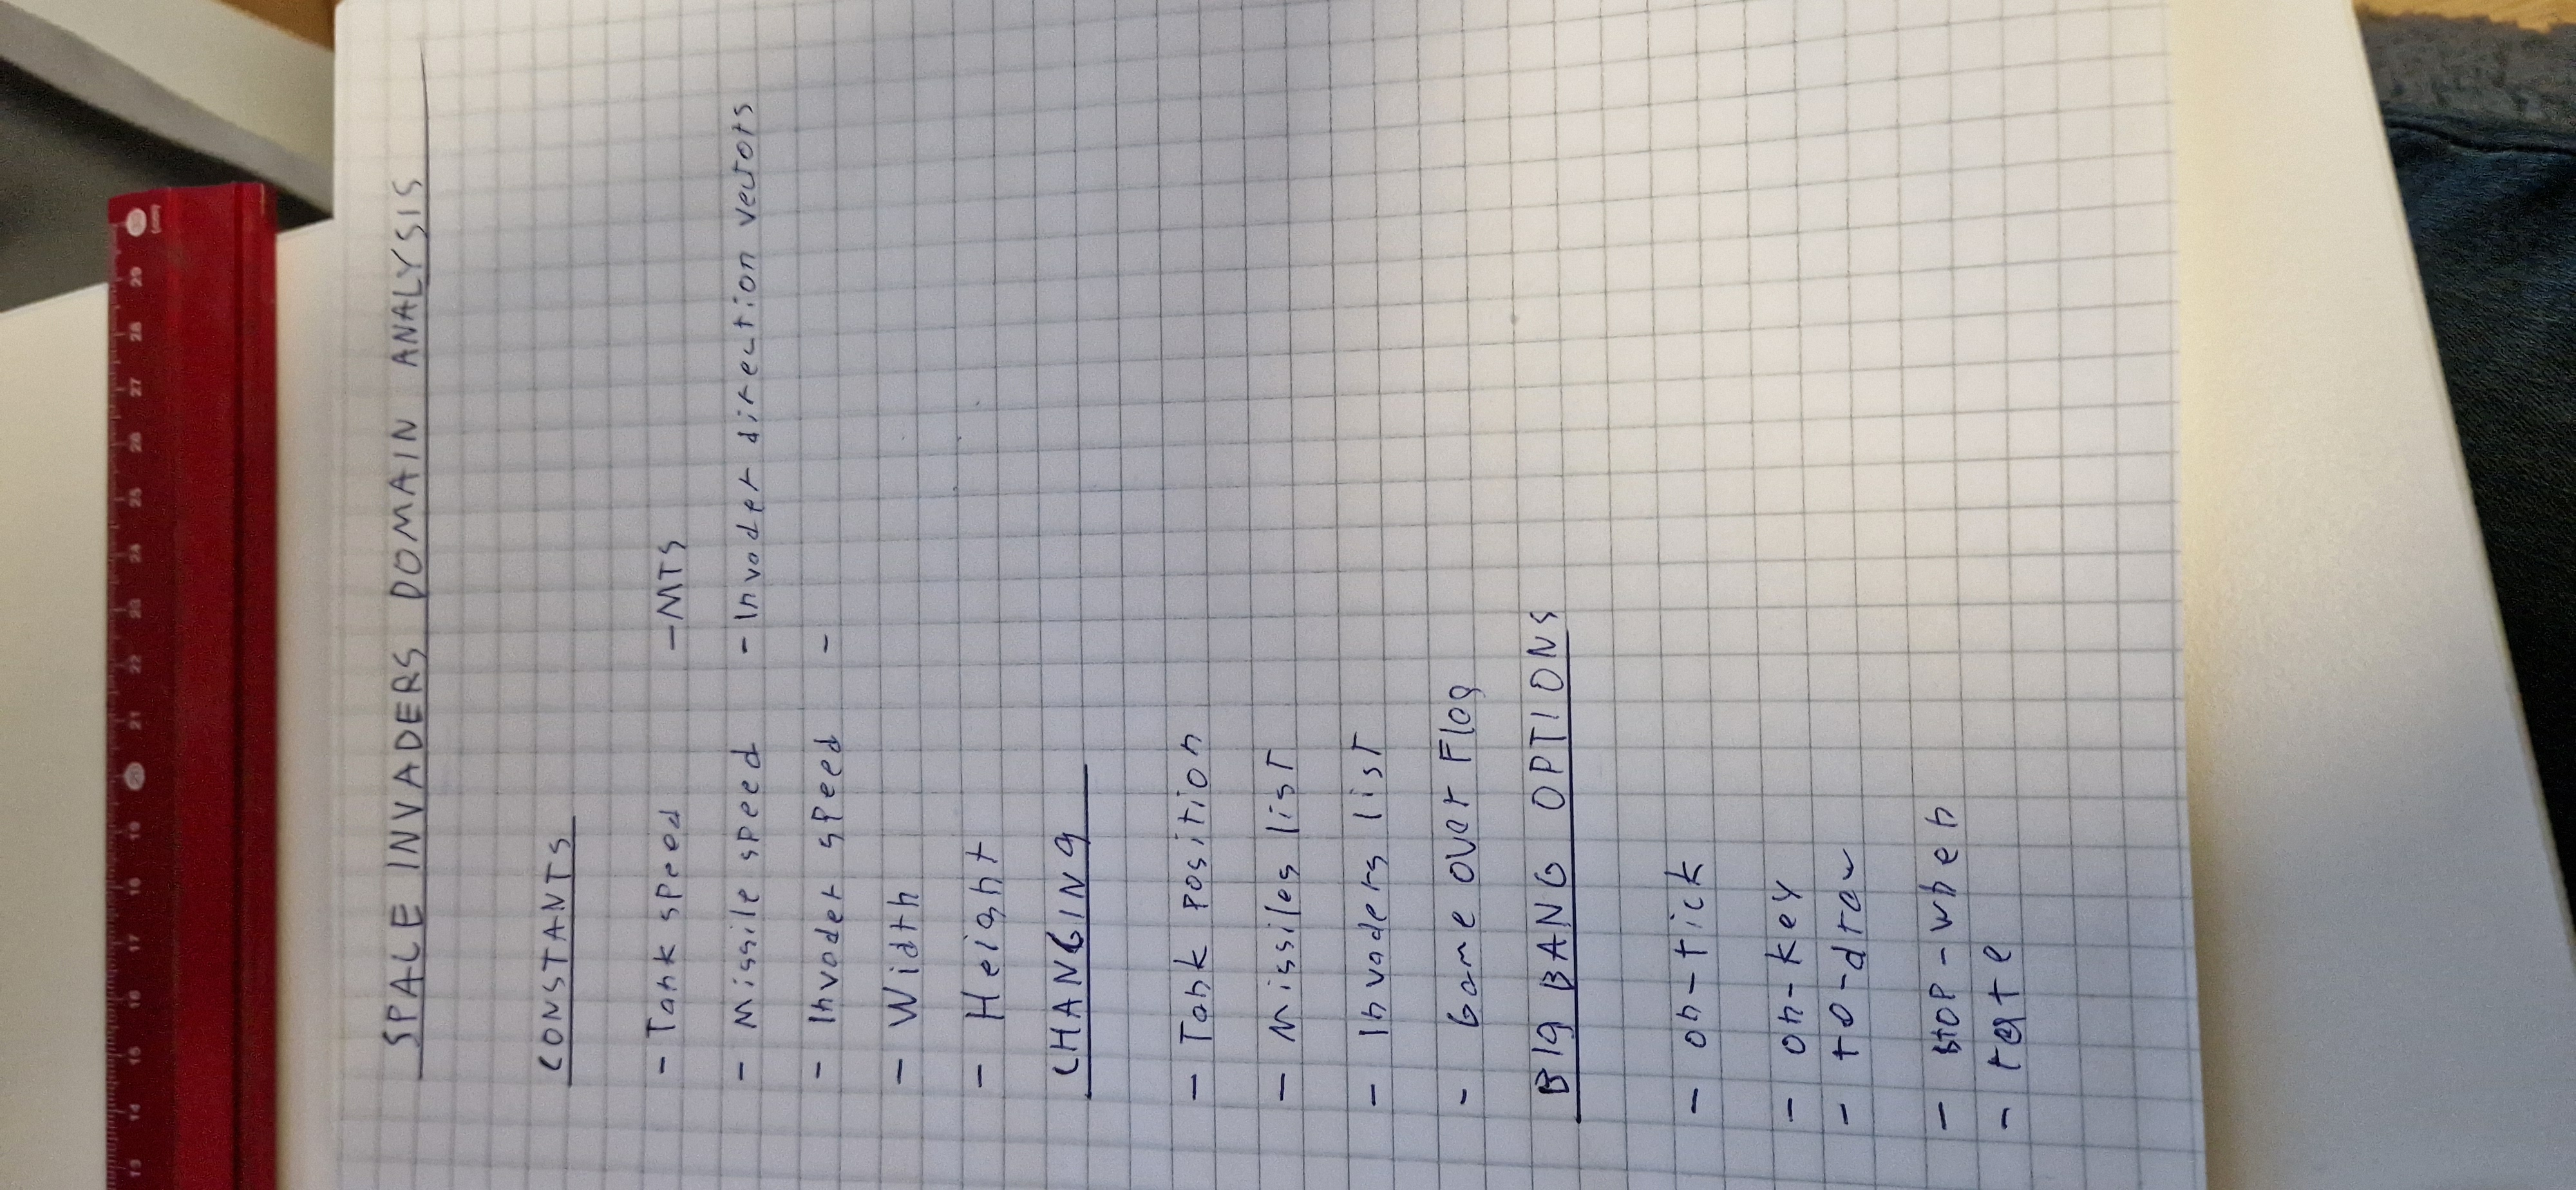 13 14 15 16 17 18 19 20 21 22 23 24 25 26 27 28 29 30
(cm)
SPACE INVADERS DOMAIN ANALYSIS
CONSTANTS
- Tank speed - MTS
- Missile speed - Invader direction vectors
- Invader speed -
- Width
- Height
CHANGING
- Tank position
- Missiles list
- Invaders list
- Game over Flag
BIG BANG OPTIONS
- on-tick
- on-key
- to-draw
- stop-when
- rate